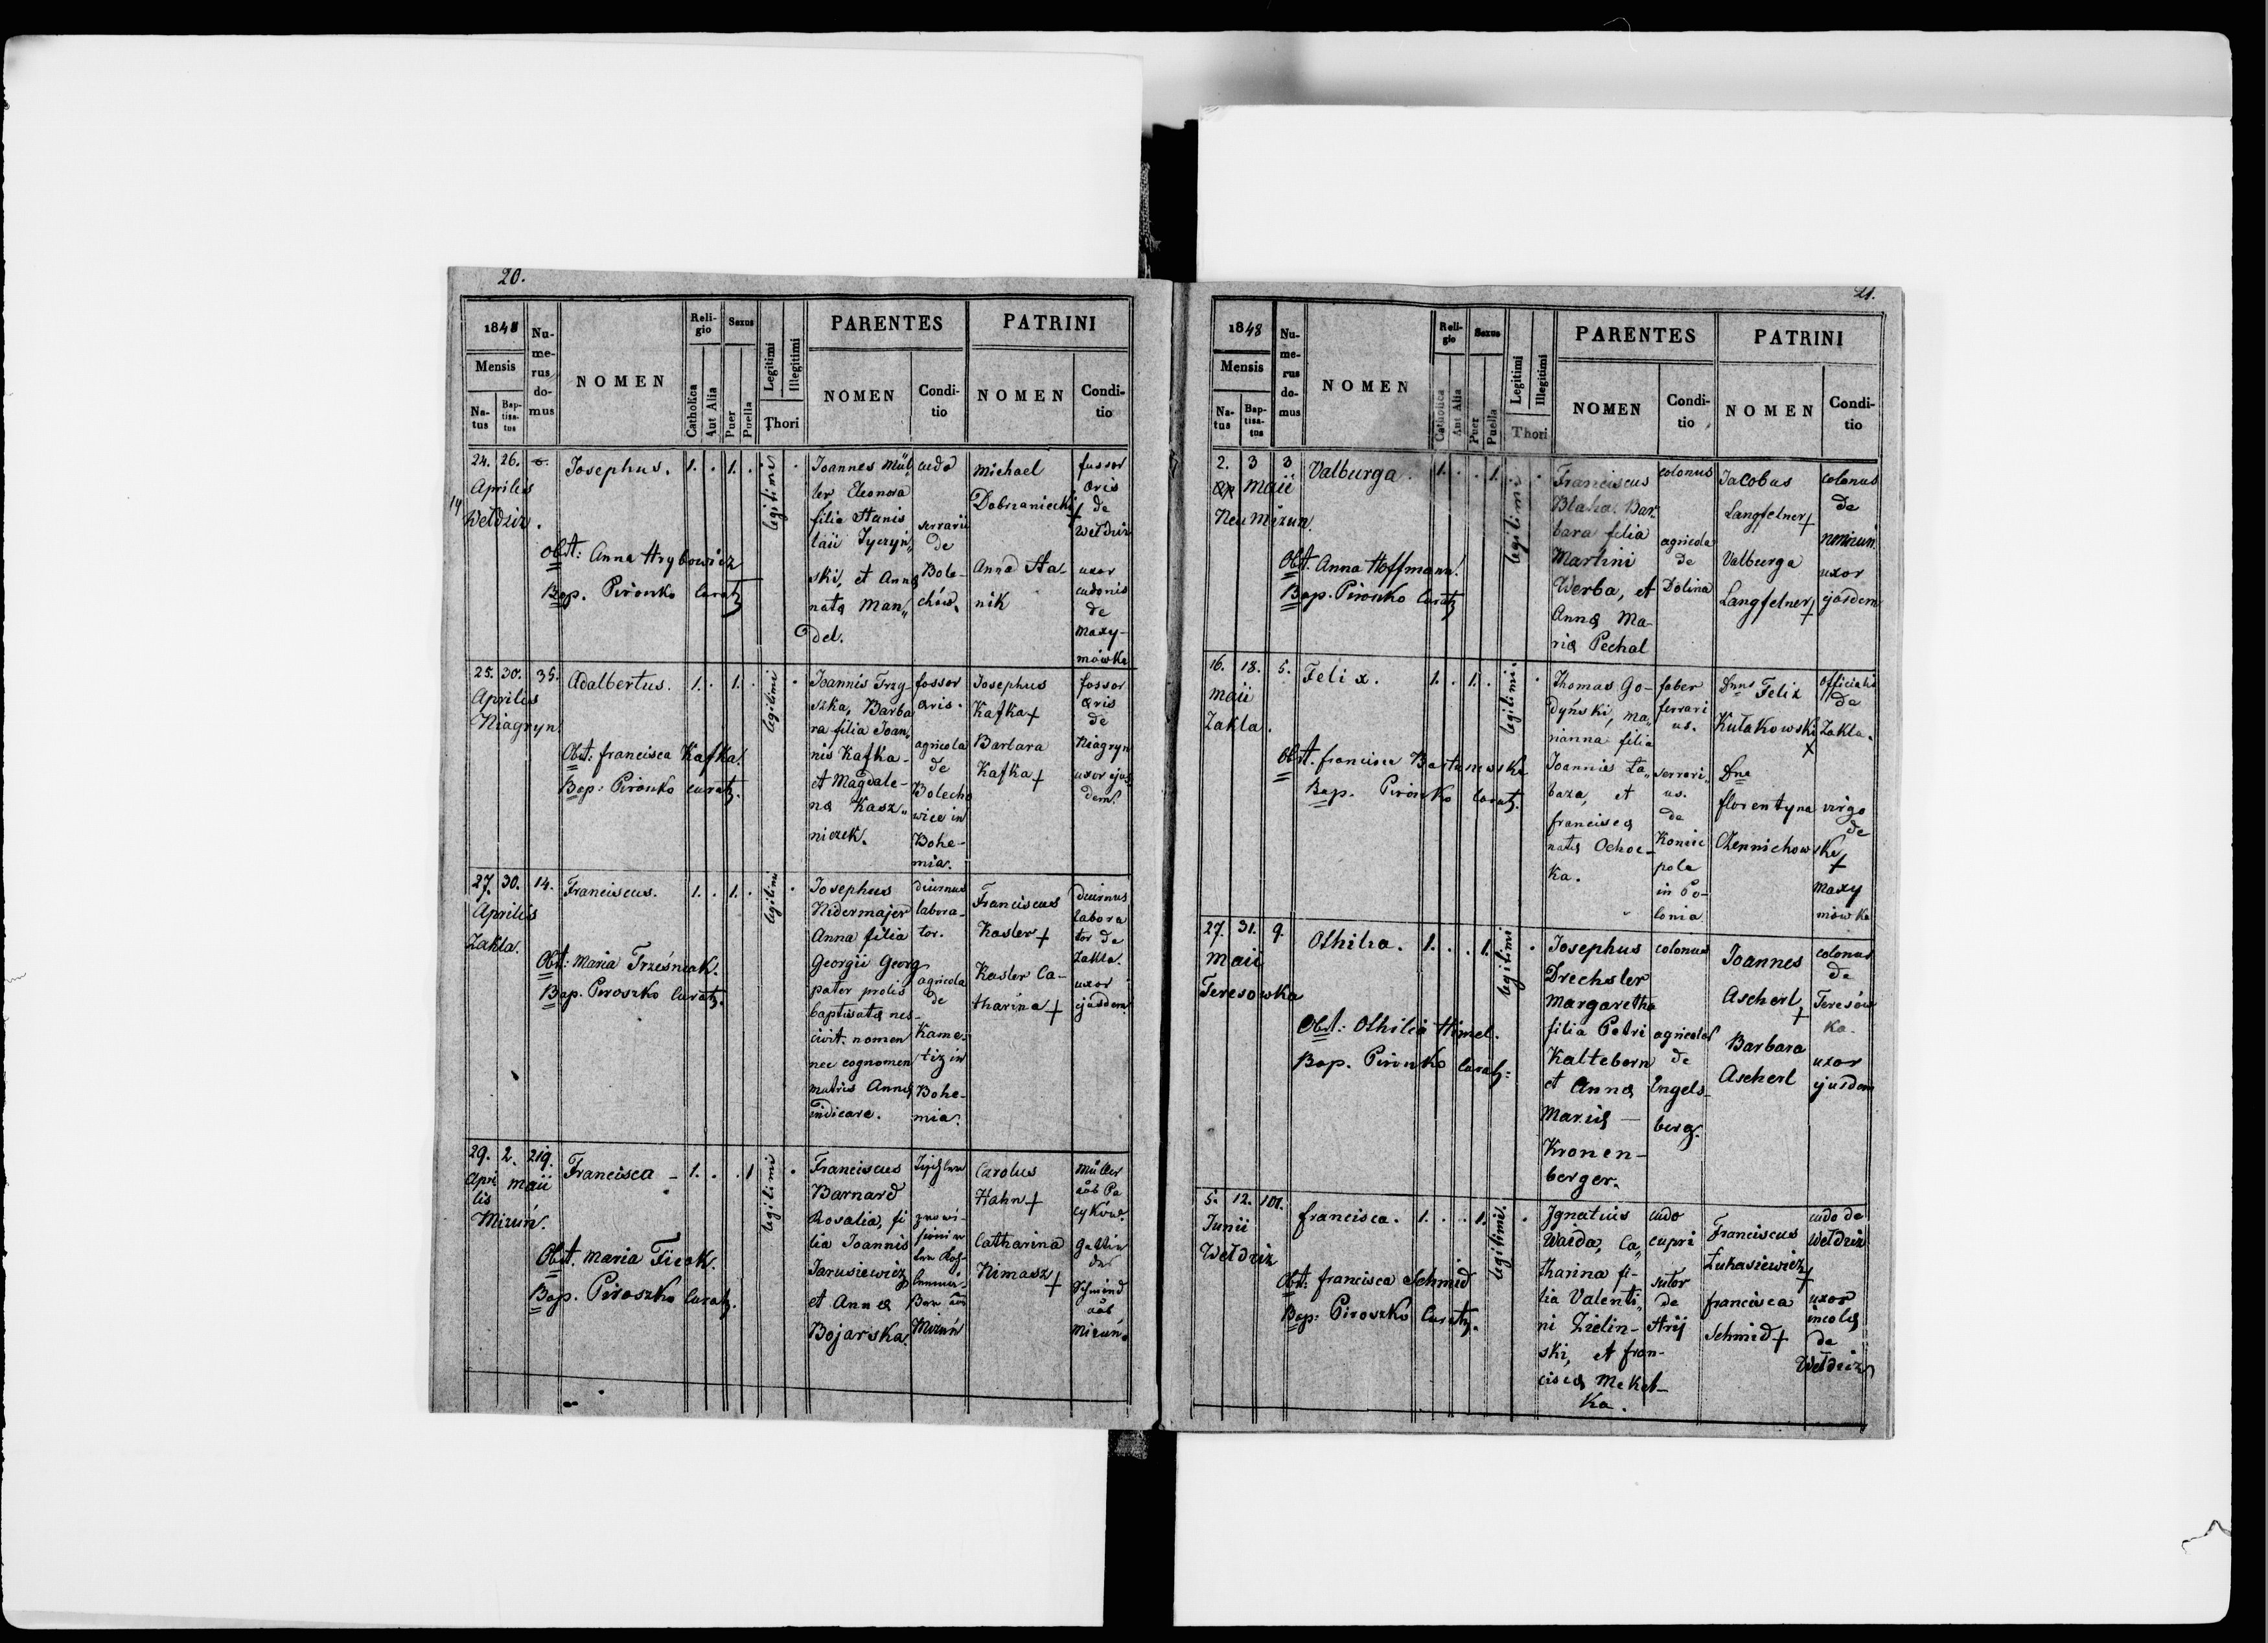 20.
1848
Mensis
Na-
tus
Bap-
tisa-
tus
Nu-
me-
rus
do-
mus
NOMEN
Reli-
gio
Catholica
Aut Alia
Sexus
Puer
Puella
Legitimi
Illegitimi
Thori
PARENTES
NOMEN
Condi-
tio
PATRINI
NOMEN
Condi-
tio
24. 26.
Aprilis
14
Wełdziz.
Josephus.
1. . 1. .
legitimi
Obst: Anna Hrybowicz
Bap. Pironko Curatz
Joannes Mül
ler Eleonora
filia Stanis
laii Tyczyń„
ski, et Anna
nata Man„
del.
cudo
serrarii
de
Bole-
chów.
Michael
Dobrzaniecki +
Anna Ha-
nik
fossor
aris
de
Wełdziz
uxor
cudonis
de
Maxy-
mówka
25. 30. 35.
Aprilis
Niagryn
Adalbertus.
1. . 1. .
legitimi
Obst: francisca Kafka.
Bap: Pironko curatz.
Joannis Trzy-
szka, Barba
ra filia Joan„
nis Kafka -
et Magdale-
na Kasz„
niczek.
fossor
aris.
agricola
de
Bolecho
wice in
Bohe-
mia.
Josephus
Kafka +
Barbara
Kafka +
fossor
aris
de
Niagryn
uxor ejus
dem.
27. 30. 14.
Aprilis
Zakla.
Franciscus.
1. . 1. .
legitimi
Obst: Maria Trześniak.
Bap. Piroszko Curatz.
Josephus
Nidermajer
Anna filia
Georgii Georg
pater prolis
baptisata nes-
civit nomen
nec cognomen
matris Anna
indicare.
diurnus
labora-
tor.
agricola
de
Kame-
tiz in
Bohe-
mia.
Franciscus
Kasler +
Kasler Ca-
tharina +
diurnus
labora
tor de
Zakla.
uxor
ejusdem
29. 2. 219.
Apri
lis
Maii
Mizuń.
Francisca -
1. . . 1
legitimi
Obst. Maria Ficek.
Bap. Piroszko Curatz.
Franciscus
Barnard
Rosalia, fi
lia Joannis
Jarusiewicz
et Anna
Bojarska.
Mizuń
Carolus
Hahn +
Catharina
Nimasz +
Müller
aŭs Pa
cyków.
Gattin
des
Schmied
aŭs
Mizuń.
21.
1848
Mensis
Na-
tus
Bap-
tisa-
tus
Nu-
me-
rus
do-
mus
NOMEN
Reli-
gio
Catholica
Aut Alia
Sexus
Puer
Puella
Legitimi
Illegitimi
Thori
PARENTES
NOMEN
Condi-
tio
PATRINI
NOMEN
Condi-
tio
2. 3 3
Maii
Neu Mizun.
Valburga.
1. . . 1.
legitimi
Obst. Anna Hoffmann.
Bap. Pironko Curatz
Franciscus
Blaha. Bar
bara filia
Martini
Werba, et
Anna Ma-
ria Pechal
colonus
agricola
de
Dolina
Jacobus
Langfelner +
Valburga
Langfelner +
colonus
de
nmizun.
uxor
ejusdem
16. 18. 5.
Maii
Zakla.
Felix.
1. . 1. .
legitimi.
Obst. francisca Bartnowska
Bap. Pironko Curatz.
Thomas Go-
dyński, Ma„
rianna filia
Joannis La„
baza, et
francisca
nata Ochoc-
ka.
faber
ferrari
us.
serrari„
us.
de
Koniec
pole
in Po-
lonia
Dnus Felix
Kułakowski
x
Dna
florentyna
Chennichowska +
officialis
de
Zakla.
virgo
de
Maxy
mowka
27. 31. 9.
Maii
Teresowka
Othilia.
1. . . 1.
legitimi
Obst: Othilia Himel.
Bap. Pironko Curatz:
Josephus
Drechsler
Margaretha
filia Petri
Kalteborn
et Anna
Maria -
Kronen-
berger.
colonus
agricola
de
Engels-
berg.
Joannes
Ascherl
+
Barbara
Ascherl
colonus
de
Teresów
ka.
uxor
ejusdem
5. 12. 101.
Junii
Wełdziz
francisca.
1. . . 1.
legitimi.
Obst: francisca Schmid
Bap: Piroszko Curatz.
Ignatius
Waida, Ca„
tharina fi-
lia Valenti„
ni Zielin-
ski, et fran-
cisca Mekel-
ka.
cudo
cupri
sutor
de
Strij
Franciscus
Łukasiewicz +
francisca
Schmid +
cudo de
Wełdziz
uxor
incola
de
Wełdziz